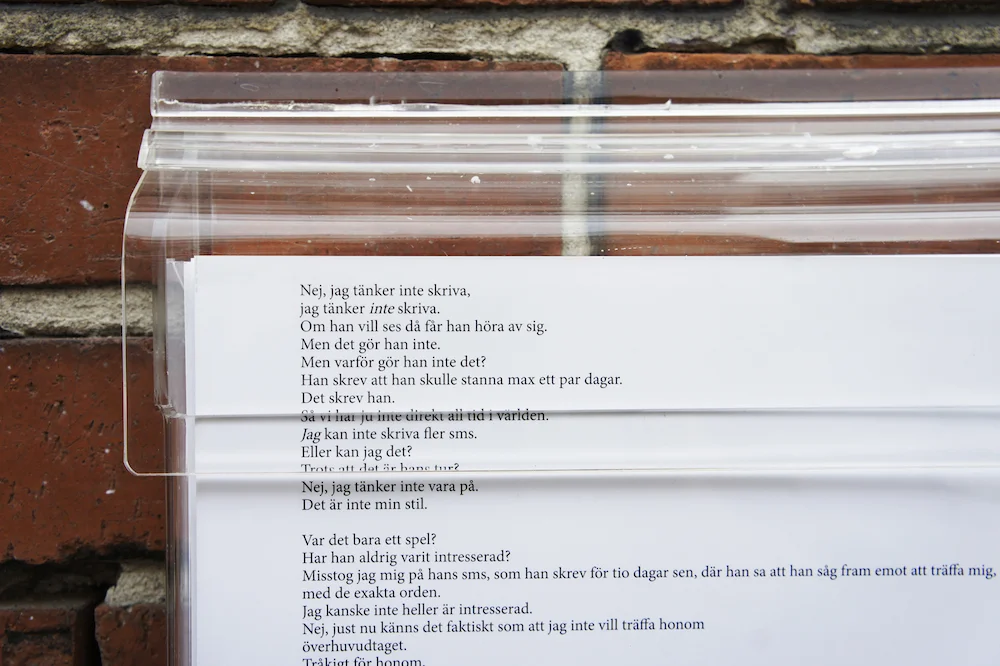 Nej, jag tänker inte skriva,
jag tänker inte skriva.
Om han vill ses då får han höra av sig.
Men det gör han inte.
Men varför gör han inte det?
Han skrev att han skulle stanna max ett par dagar.
Det skrev han.
Så vi har ju inte direkt all tid i världen.
Jag kan inte skriva fler sms.
Eller kan jag det?
Trots att det är hans tur?
Nej, jag tänker inte vara på.
Det är inte min stil.
Var det bara ett spel?
Har han aldrig varit intresserad?
Misstog jag mig på hans sms, som han skrev för tio dagar sen, där han sa att han såg fram emot att träffa mig,
med de exakta orden.
Jag kanske inte heller är intresserad.
Nej, just nu känns det faktiskt som att jag inte vill träffa honom
överhuvudtaget.
Tråkigt för honom.